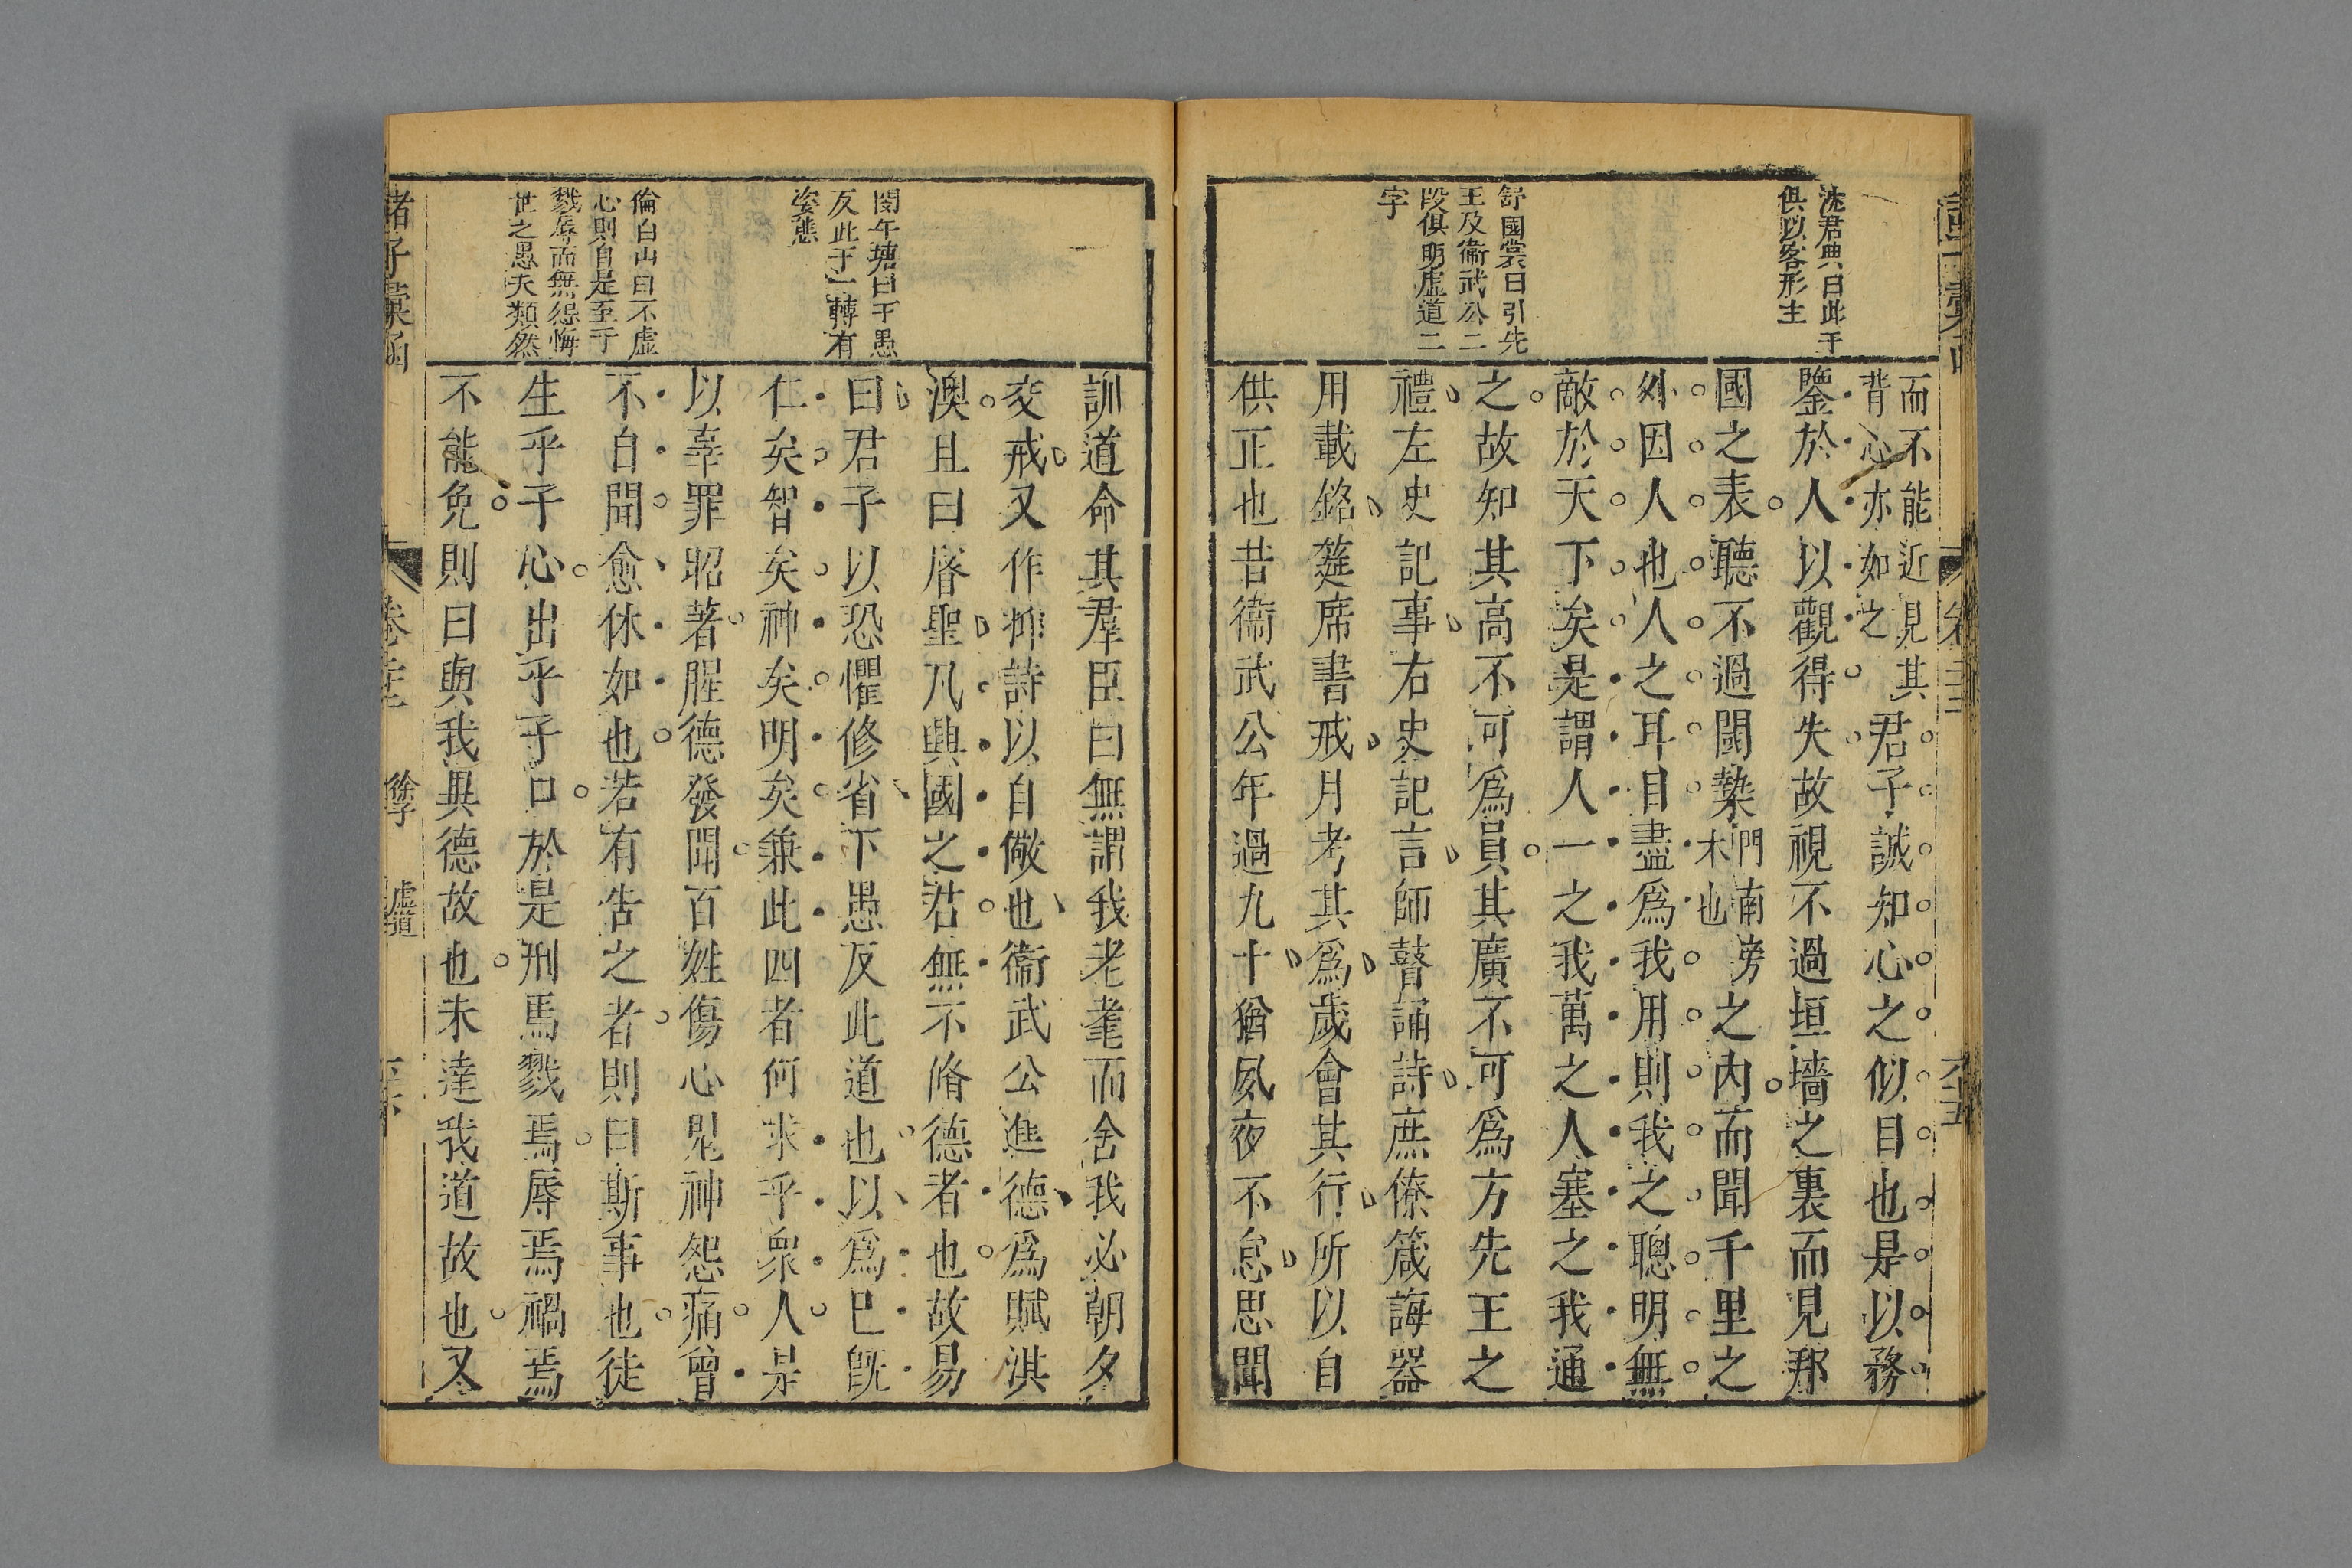 沈君典曰此于
俱以客形主
舒國裳曰引先
王及衞武公二
段俱明虛道二
字
而不能近見其
背心亦如之
君子誠知心之似目也是以務
鑒於人以觀得失故視不過垣墻之裏而見邦
國之表聽不過閫槷
門南旁
木也
之內而聞千里之
外因人也人之耳目盡爲我用則我之聰明無
敵於天下矣是謂人一之我萬之人塞之我通
之故知其高不可爲員其廣不可爲方先王之
禮左史記事右史記言師瞽誦詩庶僚箴誨器
用載銘筵席書戒月考其爲歲會其行所以自
供正也昔衞武公年過九十猶夙夜不怠思聞
閔午塘曰下愚
反此于一轉有
姿態
倫白山曰不虛
心則自是至于
戮辱而無怨悔
世之愚夫類然
訓道命其羣臣曰無謂我老耄而舍我必朝夕
交戒又作抑詩以自儆也衞武公進德爲賦淇
澳且曰睿聖凡興國之君無不脩德者也故易
曰君子以恐懼修省下愚反此道也以爲已旣
仁矣智矣神矣明矣兼此四者何求乎衆人是
以辜罪昭著腥德發聞百姓傷心鬼神怨痛曾
不自聞愈休如也若有告之者則曰斯事也徒
生乎子心出乎子口於是刑焉戮焉辱焉禍焉
不能免則曰與我異德故也未達我道故也又
諸子彙函
徐子
虛道